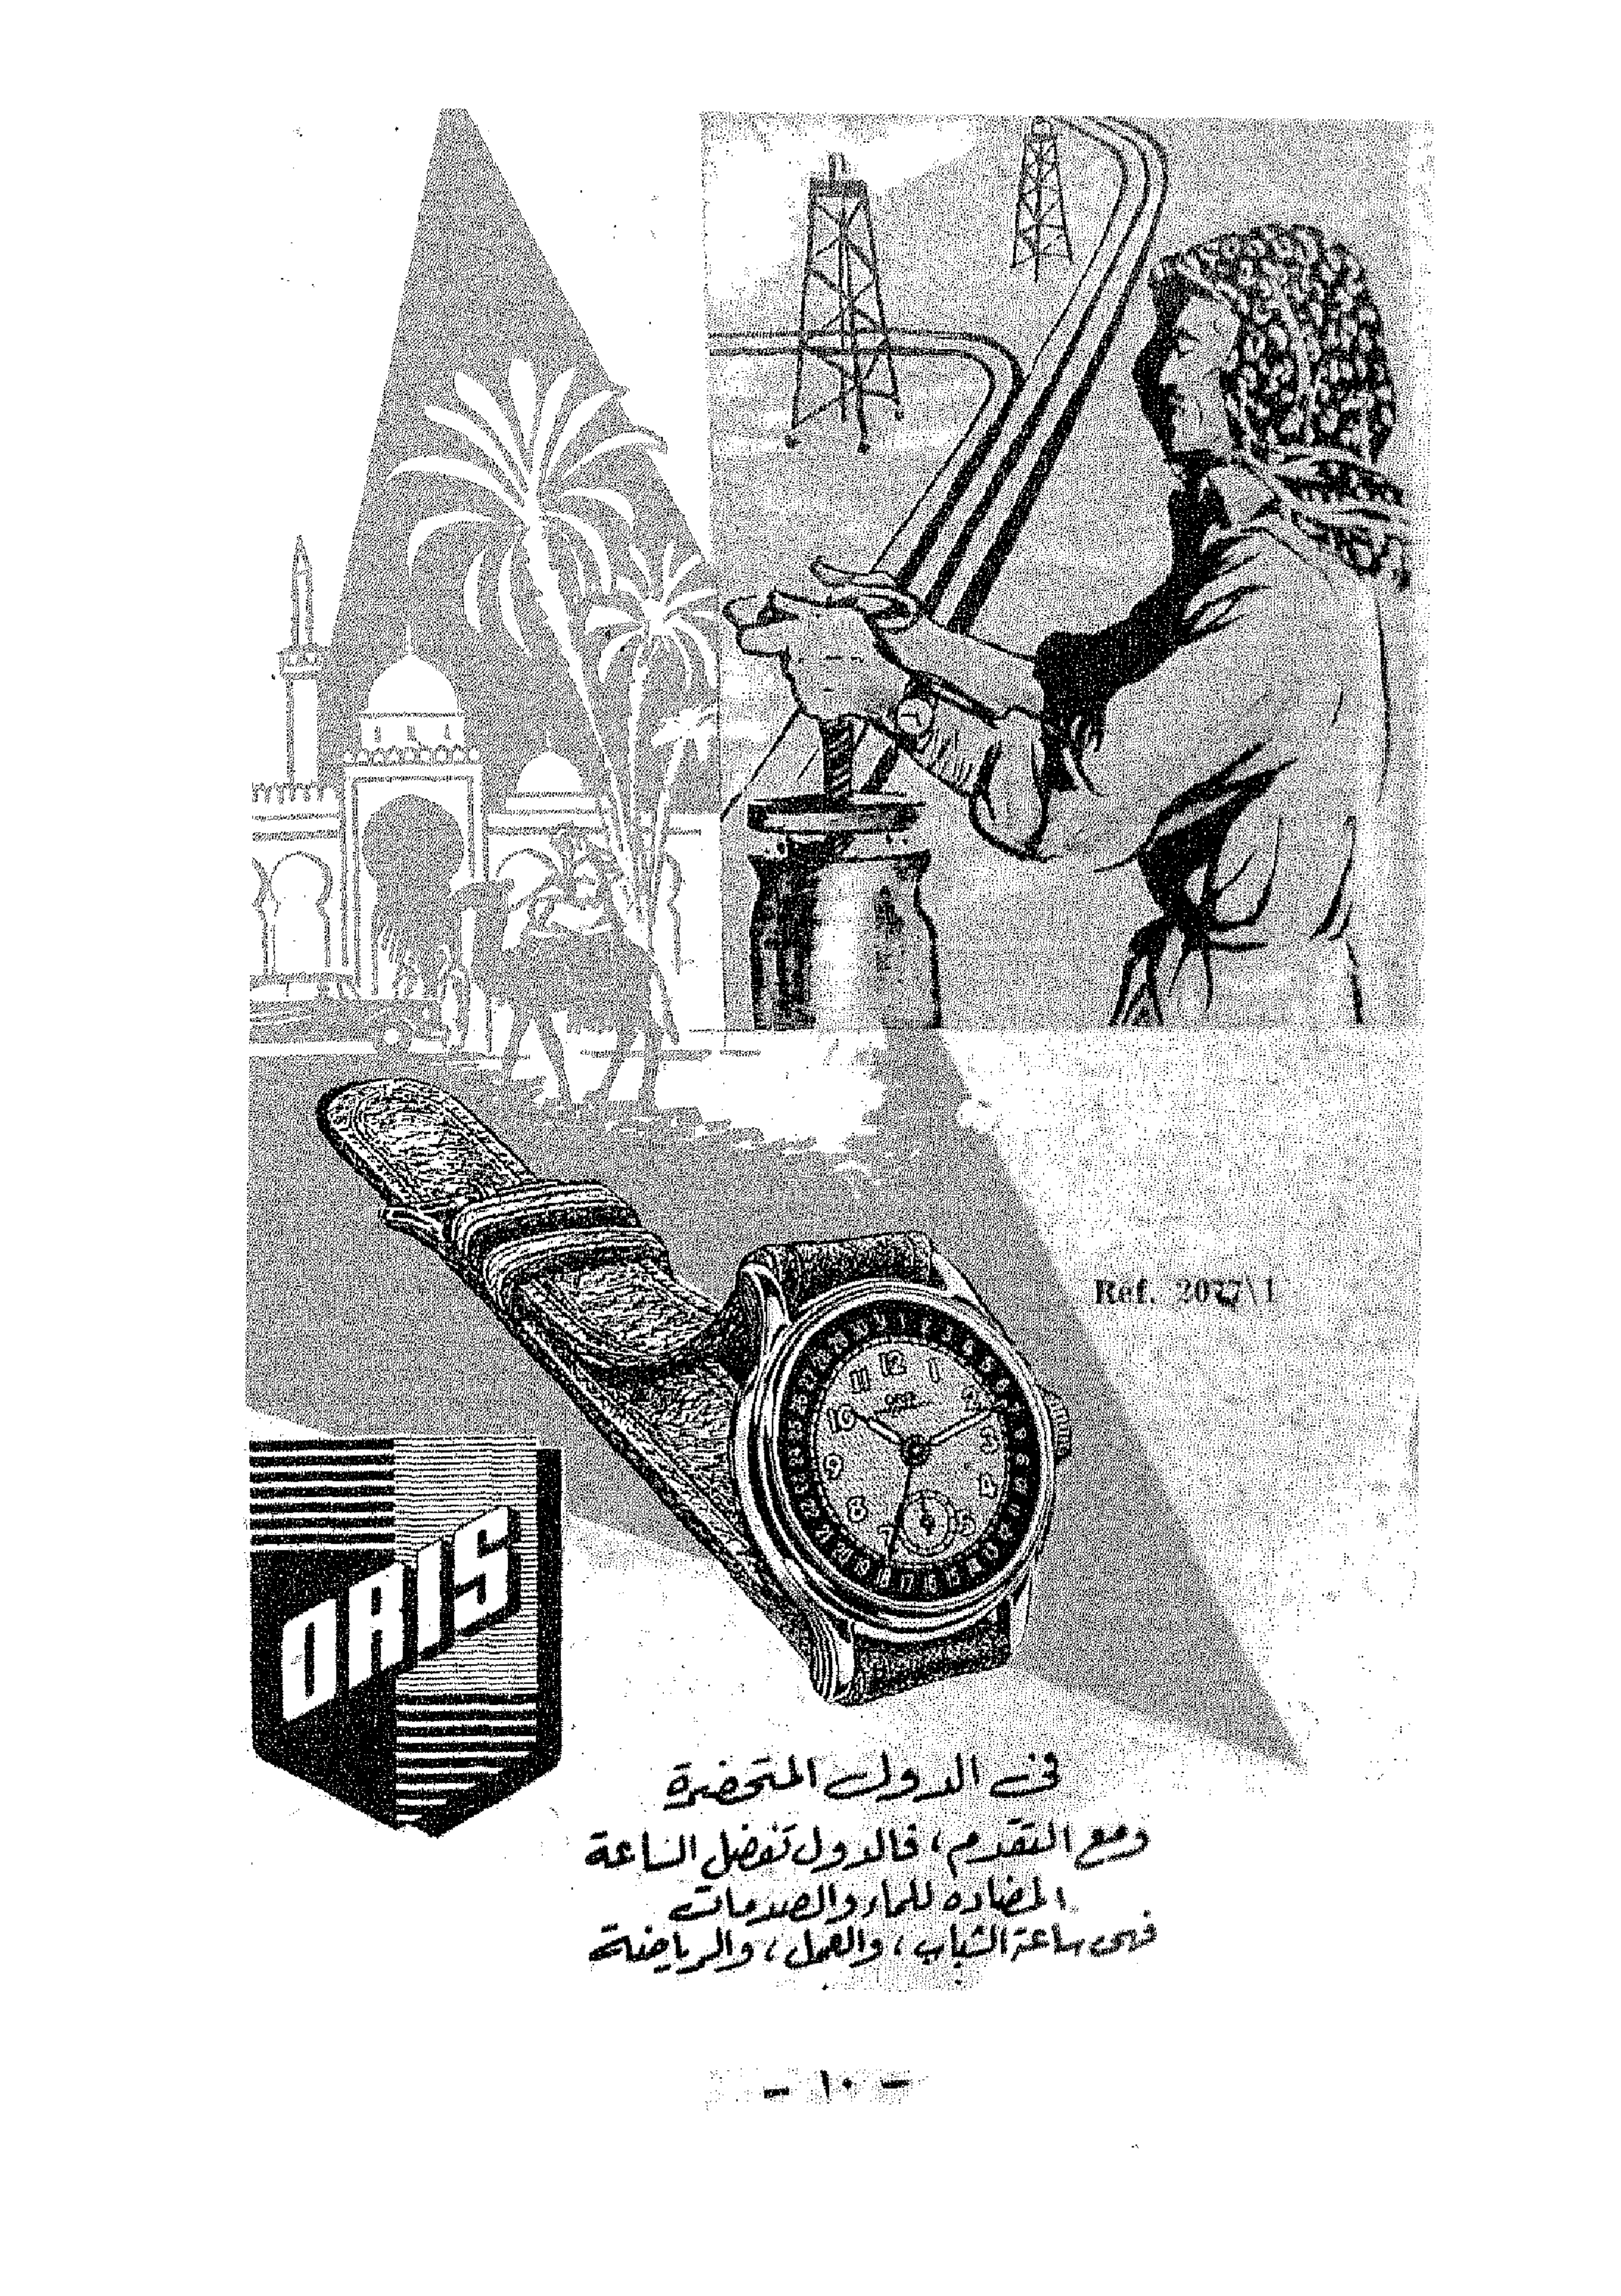 Ref. 2077\1
ORIS
فى الدول المتحضرة
ومع التقدم، فالدول تفضل الساعة
المضاده للماء والصدمات
فهى ساعة الشباب، والعمل، والرياضة
- ١٠ -